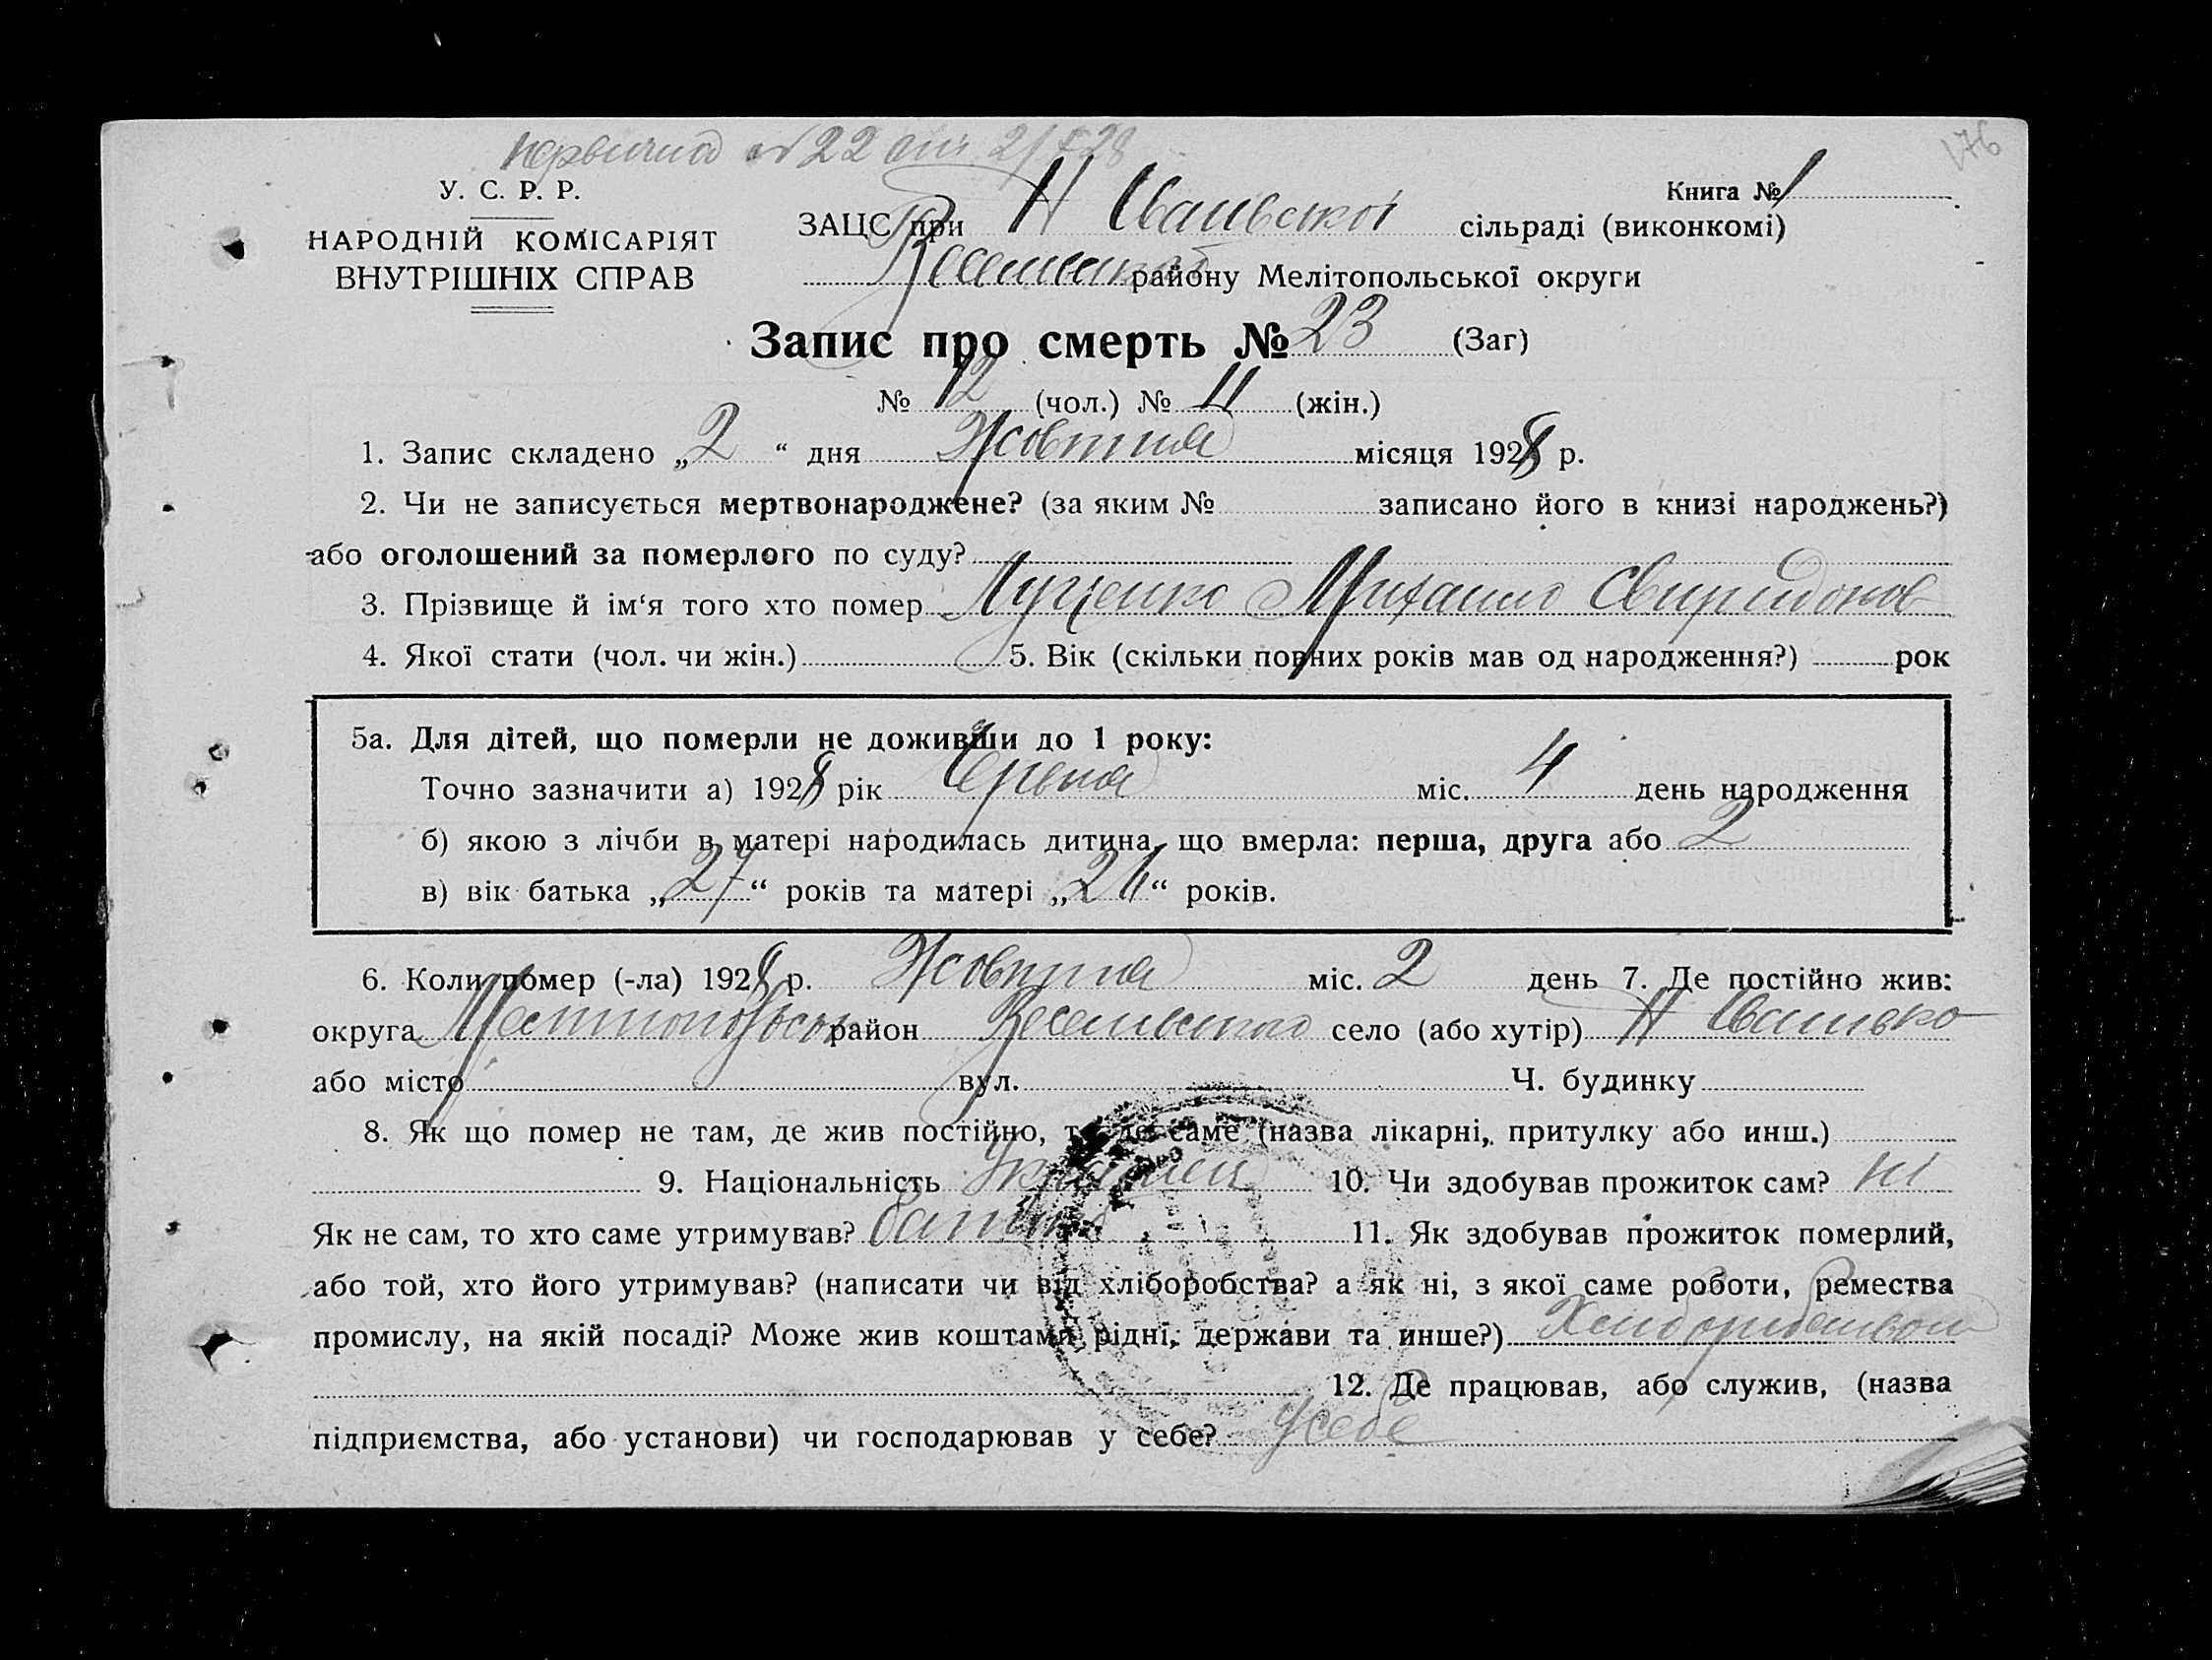 176
У. С. Р. Р.
НАРОДНІЙ КОМІСАРІЯТ
ВНУТРІШНІХ СПРАВ
Книга № 1
ЗАЦС при Н сільраді (виконкомі)
району Мелітопольської округи
Запис про смерть № 23 (Заг)
№ 12 (чол.) № 11 (жін.)
1. Запис складено „2“ дня Жовтня місяця 1928 р.
2. Чи не записується мертвонароджене? (за яким № записано його в книзі народжень?)
або оголошений за померлого по суду?
3. Прізвище й ім‘я того хто помер Луценко Михаило Свиридонов
4. Якої стати (чол. чи жін.) 5. Вік (скільки повних років мав од народження?) рок
5а. Для дітей, що померли не доживши до 1 року:
Точно зазначити а) 1928 рік Червня міс. 4 день народження
б) якою з лічби в матері народилась дитина, що вмерла: перша, друга або 2
в) вік батька „27“ років та матері „24“ років.
6. Коли помер (-ла) 1928 р. Жовтня міс. 2 день 7. Де постійно жив:
округа район село (або хутір) Н
або місто вул. Ч. будинку
8. Як що помер не там, де жив постійно, то де саме (назва лікарні, притулку або инш.)
9. Національність Українец 10. Чи здобував прожиток сам? Ні
Як не сам, то хто саме утримував? батько 11. Як здобував прожиток померлий,
або той, хто його утримував? (написати чи від хліборобства? а як ні, з якої саме роботи, ремества
промислу, на якій посаді? Може жив коштами рідні, держави та инше?)
12. Де працював, або служив, (назва
підприємства, або установи) чи господарював у себе? Усебе